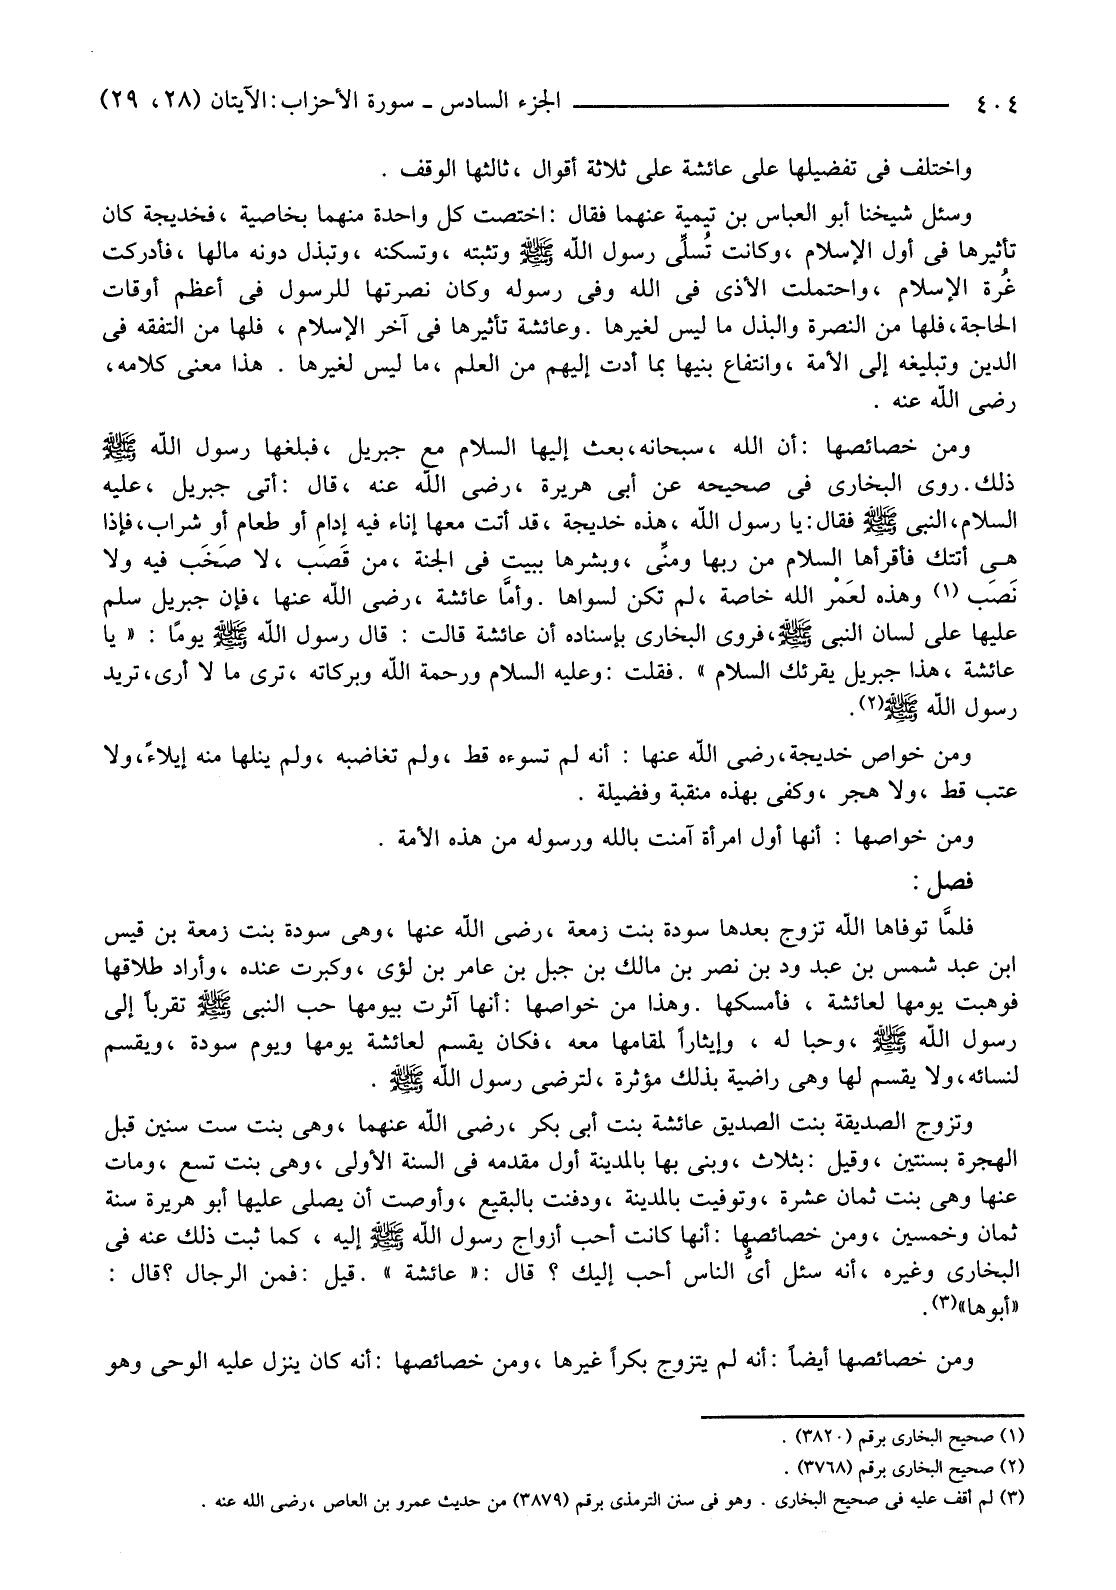 ٤٠٤ ــــــــــــ الجزء السادس ـ سورة الأحزاب: الآيتان (٢٨، ٢٩)
واختلف فى تفضيلها على عائشة على ثلاثة أقوال ، ثالثها الوقف .
وسئل شيخنا أبو العباس بن تيمية عنهما فقال : اختصت كل واحدة منهما بخاصية ، فخديجة كان
تأثيرها فى أول الإسلام ، وكانت تُسلِّى رسول الله ﷺ وتثبته ، وتسكنه ، وتبذل دونه مالها ، فأدركت
غُرة الإسلام ، واحتملت الأذى فى الله وفى رسوله وكان نصرتها للرسول فى أعظم أوقات
الحاجة، فلها من النصرة والبذل ما ليس لغيرها . وعائشة تأثيرها فى آخر الإسلام ، فلها من التفقه فى
الدين وتبليغه إلى الأمة ، وانتفاع بنيها بما أدت إليهم من العلم ، ما ليس لغيرها . هذا معنى كلامه،
رضى الله عنه .
ومن خصائصها : أن الله ، سبحانه، بعث إليها السلام مع جبريل ، فبلغها رسول الله ﷺ
ذلك. روى البخارى فى صحيحه عن أبى هريرة ، رضى الله عنه ، قال : أتى جبريل ، عليه
السلام، النبى ﷺ فقال: يا رسول الله ، هذه خديجة ، قد أتت معها إناء فيه إدام أو طعام أو شراب، فإذا
هى أتتك فأقرأها السلام من ربها ومنِّى ، وبشرها ببيت فى الجنة ، من قَصَب ، لا صَخَب فيه ولا
نَصَب (١) وهذه لعَمْر الله خاصة ، لم تكن لسواها . وأمَّا عائشة ، رضى الله عنها ، فإن جبريل سلم
عليها على لسان النبى ﷺ، فروى البخارى بإسناده أن عائشة قالت : قال رسول الله ﷺ يومًا : « يا
عائشة ، هذا جبريل يقرئك السلام » . فقلت : وعليه السلام ورحمة الله وبركاته ، ترى ما لا أرى، تريد
رسول الله ﷺ(٢).
ومن خواص خديجة، رضى الله عنها : أنه لم تسوءه قط ، ولم تغاضبه ، ولم ينلها منه إيلاءً، ولا
عتب قط ، ولا هجر ، وكفى بهذه منقبة وفضيلة .
ومن خواصها : أنها أول امرأة آمنت بالله ورسوله من هذه الأمة .
فصل :
فلمَّا توفاها الله تزوج بعدها سودة بنت زمعة ، رضى الله عنها ، وهى سودة بنت زمعة بن قيس
ابن عبد شمس بن عبد ود بن نصر بن مالك بن جبل بن عامر بن لؤى ، وكبرت عنده ، وأراد طلاقها
فوهبت يومها لعائشة ، فأمسكها . وهذا من خواصها : أنها آثرت بيومها حب النبى ﷺ تقرباً إلى
رسول الله ﷺ ، وحبا له ، وإيثاراً لمقامها معه ، فكان يقسم لعائشة يومها ويوم سودة ، ويقسم
لنسائه، ولا يقسم لها وهى راضية بذلك مؤثرة ، لترضى رسول الله ﷺ .
وتزوج الصديقة بنت الصديق عائشة بنت أبى بكر ، رضى الله عنهما ، وهى بنت ست سنين قبل
الهجرة بسنتين ، وقيل : بثلاث ، وبنى بها بالمدينة أول مقدمه فى السنة الأولى ، وهى بنت تسع ، ومات
عنها وهى بنت ثمان عشرة ، وتوفيت بالمدينة ، ودفنت بالبقيع ، وأوصت أن يصلى عليها أبو هريرة سنة
ثمان وخمسين ، ومن خصائصها : أنها كانت أحب أزواج رسول الله ﷺ إليه ، كما ثبت ذلك عنه فى
البخارى وغيره ، أنه سئل أىُّ الناس أحب إليك ؟ قال : « عائشة » . قيل : فمن الرجال ؟ قال :
«أبوها»(٣).
ومن خصائصها أيضاً : أنه لم يتزوج بكراً غيرها ، ومن خصائصها : أنه كان ينزل عليه الوحى وهو
(١) صحيح البخارى برقم (٣٨٢٠) .
(٢) صحيح البخارى برقم (٣٧٦٨) .
(٣) لم أقف عليه فى صحيح البخارى . وهو فى سنن الترمذى برقم (٣٨٧٩) من حديث عمرو بن العاص ، رضى الله عنه .